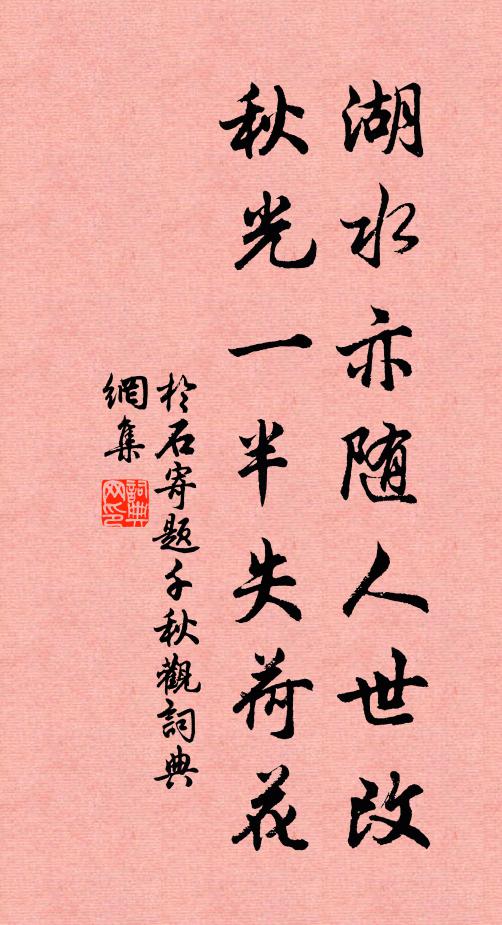 湖水亦随人世改
秋光一半失荷花
於石寄题千秋觀詞典
網集
詞典网印